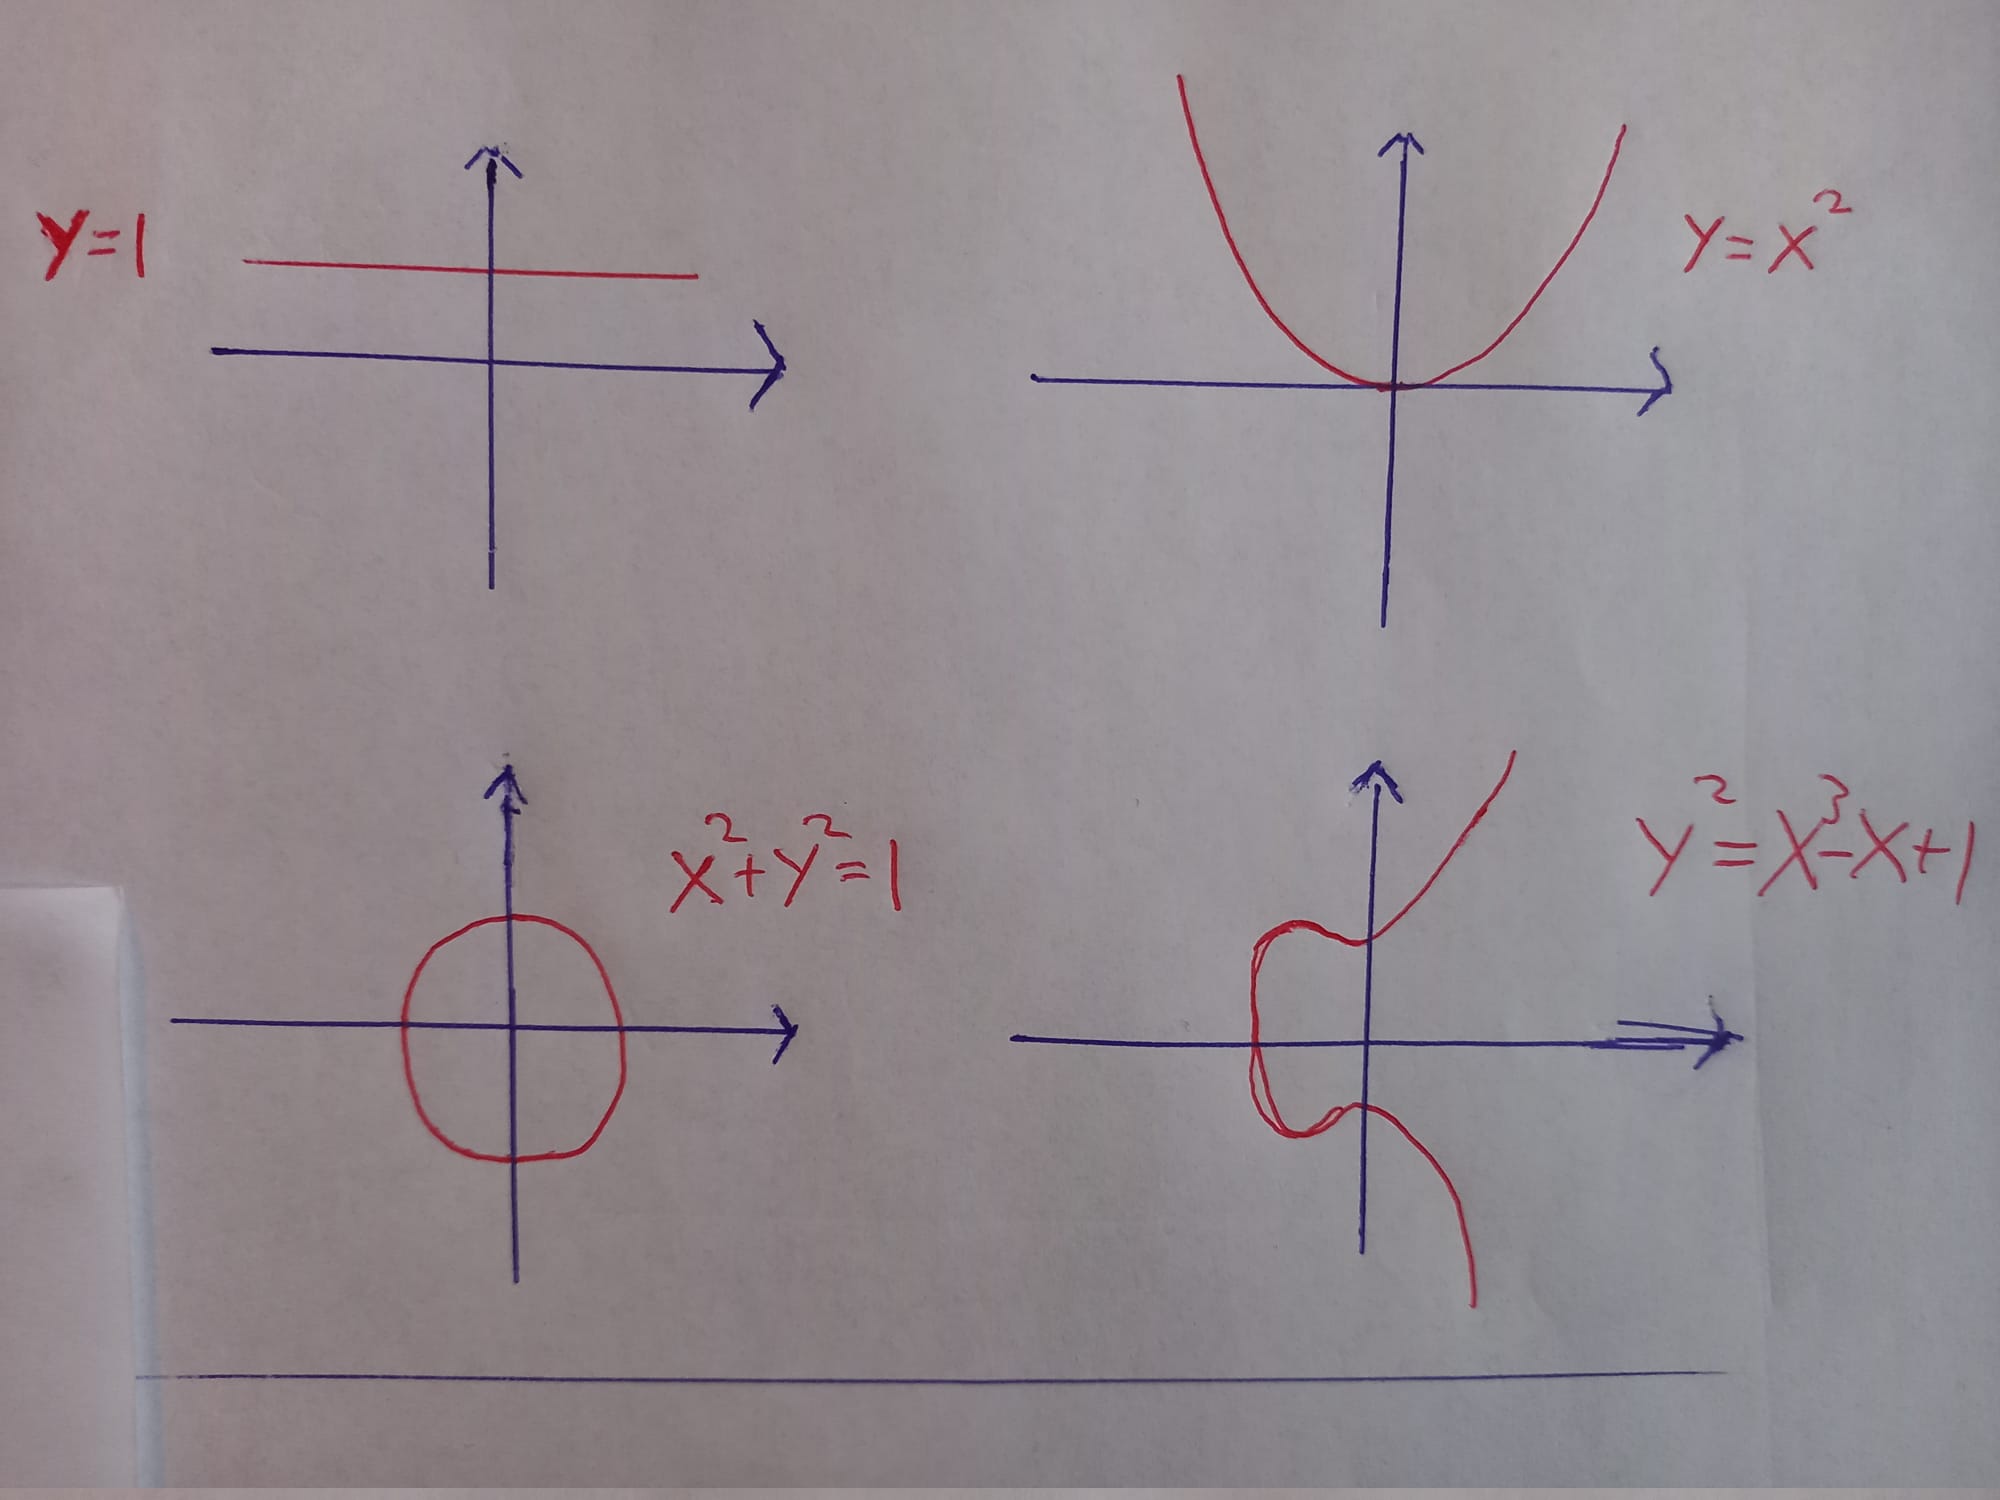 y=1
y=x²
x²+y²=1
y²=x³-x+1